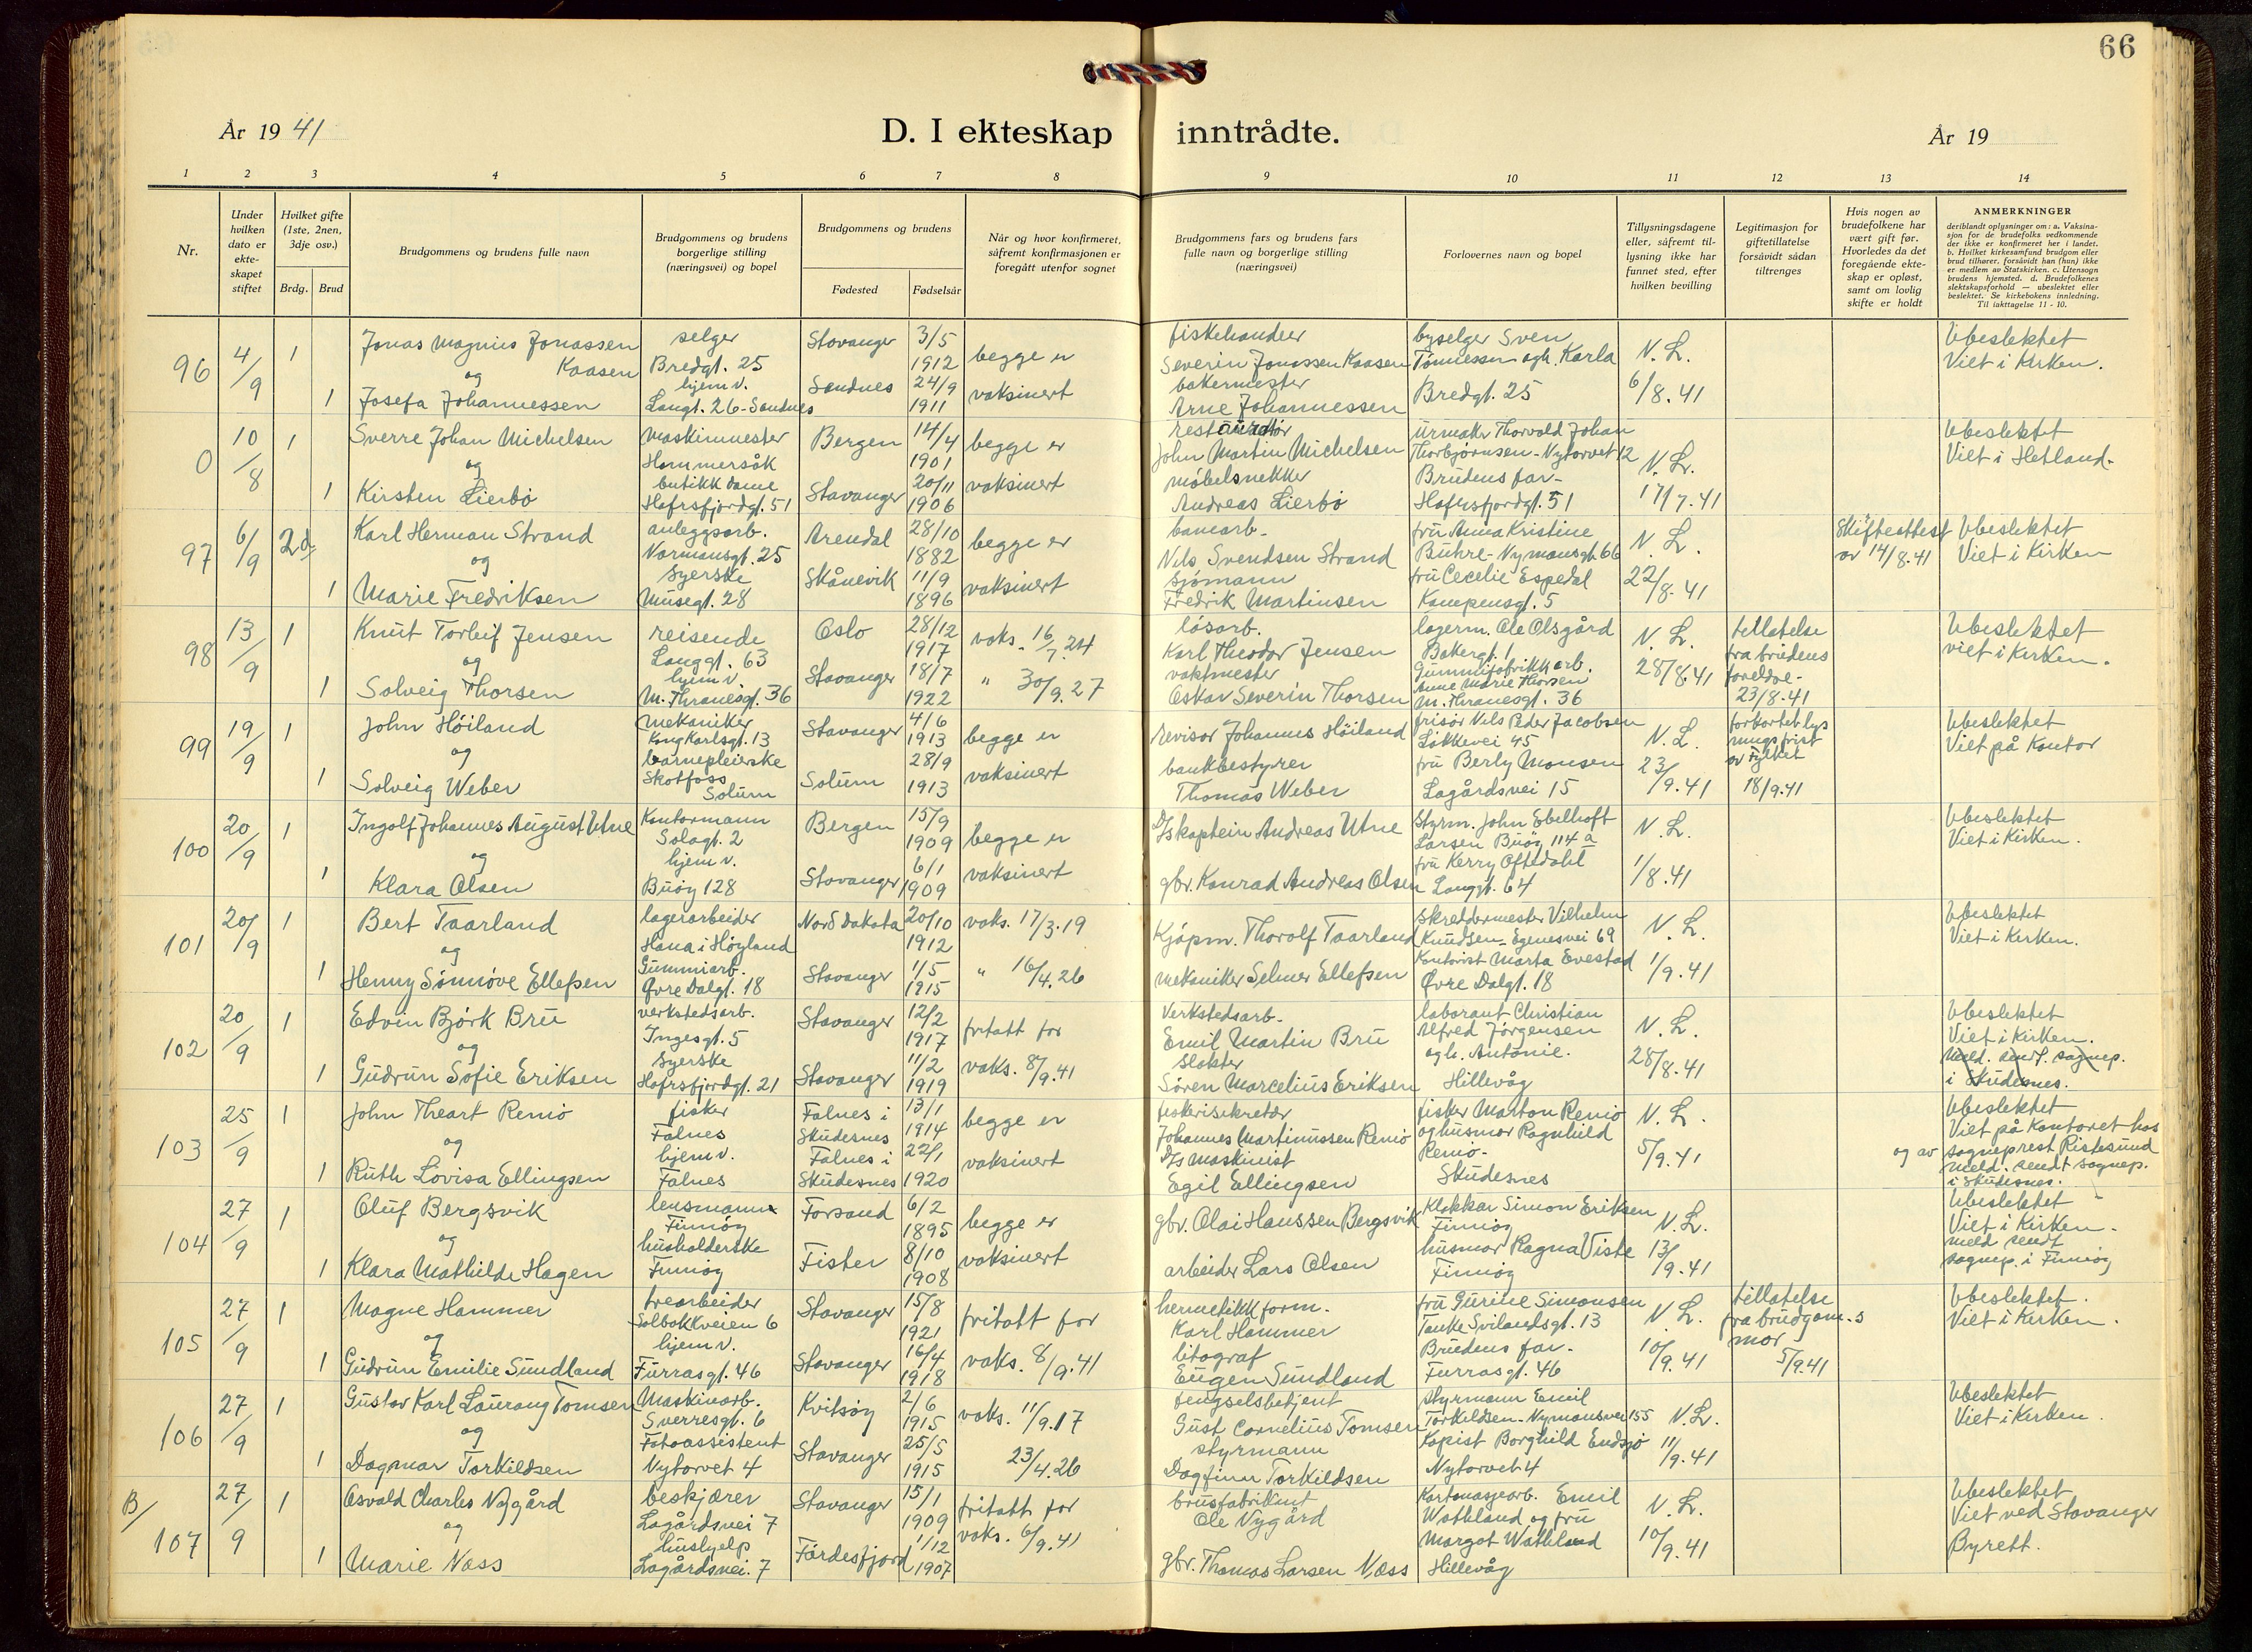 66
År 1941
D. I ekteskap inntrådte.
År 19
1 2 3 4 5 6 7 8 9 10 11 12 13 14
Nr.
Under hvilken dato er ekte-skapet stiftet
Hvilket gifte (1ste, 2nen, 3dje osv.)
Brdg. Brud
Brudgommens og brudens fulle navn
Brudgommens og brudens borgerlige stilling (næringsvei) og bopel
Brudgommens og brudens
Fødested Fødselsår
Når og hvor konfirmeret, såfremt konfirmasjonen er foregått utenfor sognet
Brudgommens fars og brudens fars fulle navn og borgerlige stilling (næringsvei)
Forlovernes navn og bopel
Tillysningsdagene eller, såfremt til-lysning ikke har funnet sted, efter hvilken bevilling
Legitimasjon for giftetillatelse forsåvidt sådan tiltrenges
Hvis nogen av brudefolkene har vært gift før. Hvorledes da det foregående ekte-skap er opløst, samt om lovlig skifte er holdt
ANMERKNINGER
deriblandt oplysninger om: a. Vaksina-sjon for de brudefolks vedkommende der ikke er konfirmeret her i landet. b. Hvilket kirkesamfund brudgom eller brud tilhører, forsåvidt han (hun) ikke er medlem av Statskirken. c. Utensogn brudens hjemsted. d. Brudefolkenes slektskapsforhold — ubeslektet eller beslektet. Se kirkebokens innledning. Til iakttagelse 11 - 10.
96 4/9 1 Jonas Magnus Jonassen Kaasen selger Bredgt. 25 Stavanger 3/5 1912 begge er vaksinert fiskehandler Severin Jonassen Kaasen byselger Sven Tönnessen og h. Karla Bredgt. 25 N.L. 6/8.41 Ubeslektet Viet i Kirken.
og
1 Josefa Johannessen hjemv. Langt. 26-Sandnes Sandnes 24/9 1911 bakermester Arne Johannessen
0 10/8 1 Sverre Johan Michelsen maskinmester Hommersåk Bergen 14/4 1901 begge er vaksinert restauratör John Martin Michelsen urmaker Thorvald Johan Thorbjørnsen-Nytorvet 12 N.L. 17/7.41 Ubeslektet Viet i Hetland.
og
1 Kirsten Lierbö butikkdame Hafrsfjordgt. 51 Stavanger 20/11 1906 möbelsnekker Andreas Lierbö Brudens far- Hafrsfjordgt. 51
97 6/9 2d Karl Herman Strand anleggsarb. Normansgt. 25 Arendal 28/10 1882 begge er vaksinert banearb. Nils Svendsen Strand fru Anna Kristine Buhre-Nymansgt. 66 N.L. 22/8.41 Skifteattest av 14/8.41 Ubeslektet Viet i Kirken
og
1 Marie Fredriksen syerske Musegt. 28 Skånevik 11/9 1896 sjömann Fredrik Martinsen fru Cecilie Espedal Kampensgt. 5
98 13/9 1 Knut Torleif Jensen reisende Langgt. 63 Oslo 28/12 1917 vaks. 16/7.24 lösarb. Karl Theodor Jensen lagerm. Ole Olsgård Bakergt. 1 N.L. 28/8.41 tillatelse fra brudens foreldre- 23/8.41 Ubeslektet viet i Kirken.
og
1 Solveig Thorsen hjemv. M. Thranesgt. 36 Stavanger 18/7 1922 " 30/9.27 vaktmester Oskar Severin Thorsen Gummifabrikkarb. Anne Marie Thorsen M. Thranesgt. 36
99 19/9 1 John Höiland mekaniker Kong Karlsgt. 13 Stavanger 4/6 1913 begge er vaksinert revisor Johannes Höiland frisör Nils Peder Jacobsen Lökkevei 45 N.L. 23/9.41 forkortet lysningsfrist av Fylket 18/9.41 Ubeslektet Viet på Kontor
og
1 Solveig Weber barnepleierske Skotfoss Solum Solum 28/9 1913 bankbestyrer Thomas Weber fru Berly Monsen Lagårdsvei 15
100 20/9 1 Ingolf Johannes August Utne Kontormann Solagt. 2 Bergen 15/9 1909 begge er vaksinert D/s kaptein Andreas Utne Styrm. John Ebelhoft Larsen Buöy 114 a N.L. 1/8.41 Ubeslektet Viet i Kirken.
og
1 Klara Olsen hjem v. Buöy 128 Stavanger 6/1 1909 gbr. Konrad Andreas Olsen fru Kerry Oftedahl Langgt. 64
101 20/9 1 Bert Taarland lagerarbeider Hana i Høyland Nord Dakota 20/10 1912 vaks. 17/3.19 Kjöpm. Thorolf Taarland Skreddermester Vilhelm Knudsen-Egenesvei 69 N.L. 1/9.41 Ubeslektet Viet i Kirken.
og
1 Henny Sönnöve Ellefsen Gummiarb. Øvre Dalgt. 18 Stavanger 1/5 1915 " 16/4.26 mekaniker Selmer Ellefsen Kontorist Marta Evestad Øvre Dalgt. 18
102 20/9 1 Edvin Bjørk Bru verkstedsarb. Ingesgt. 5 Stavanger 12/2 1917 fritatt for vaks. 8/9.41 Verkstedsarb. Emil Martin Bru laborant Christian Alfred Jörgensen og h. Antonie. Hillevåg N.L. 28/8.41 Ubeslektet Viet i Kirken. Meld. sendt. sognep. i Skudesnes.
og
1 Gudrun Sofie Eriksen syerske Hafrsfjordgt. 21 Stavanger 11/2 1919 slakter Sören Marcelius Eriksen
103 25/9 1 John Theart Remö fisker Falnes Falnes i Skudesnes 13/1 1914 begge er vaksinert fiskerisekretær Johannes Martinussen Remö fisker Marton Remö og husmor Ragnhild Remö- Skudesnes N.L. 5/9.41 Ubeslektet Viet på Kontoret hos og av sogneprest Ristesund meld. sendt sognep. i Skudesnes.
og
1 Ruth Lovisa Ellingsen hjemv. Falnes Falnes i Skudesnes 22/1 1920 D/s Maskinist Egil Ellingsen
104 27/9 1 Oluf Bergsvik lensmann Finnöy Forsand 6/2 1895 begge er vaksinert gbr. Olai Hanssen Bergsvik Klokkar Simon Eriksen Finnöy N.L. 13/9.41 Ubeslektet Viet i Kirken. meld sendt sognep. i Finnöy
og
1 Klara Mathilde Hagen husholderske Finnöy Fister 8/10 1908 arbeider Lars Olsen husmor Ragna Viste Finnöy
105 27/9 1 Magne Hammer trearbeider Solbakkveien 6 Stavanger 15/8 1921 fritatt for vaks. 8/9.41 hermetikkform. Karl Hammer fru Gurine Simonsen Tanke Svilandsgt. 13 N.L. 10/9.41 tillatelse fra brudgom.s mor 5/9.41 Ubeslektet. Viet i Kirken.
og
1 Gudrun Emilie Sundland hjemv. Furrasgt. 46 Stavanger 16/4 1918 litograf Eugen Sundland Brudens far. Furrasgt. 46
106 27/9 1 Gustav Karl Laurang Tomsen Maskinarb. Sverresgt. 6 Kvitsöy 2/6 1915 vaks. 11/9.17 fengselsbetjent Gust Cornelius Tomsen styrmann Emil Torkildsen-Nymansvei 155 N.L. 11/9.41 Ubeslektet Viet i Kirken.
og
1 Dagmar Torkildsen Fotoassistent Nytorvet 4 Stavanger 25/5 1915 23/4.26 styrmann Dagfinn Torkildsen Kopist Borghild Endsjö Nytorvet 4
B/
107 27/9 1 Osvald Charles Nygård beskjærer Lagårdsvei 7 Stavanger 15/1 1909 fritatt for vaks. 6/9.41 brusfabrikant Ole Nygård Kartonasjearb. Emil Wathland og fru Margot Wathland Hillevåg N.L. 10/9.41 Ubeslektet Viet ved Stavanger Byrett.
og
1 Marie Næss hushjelp Lagårdsvei. 7 Fördesfjord 11/12 1907 gbr. Thomas Larsen Næss